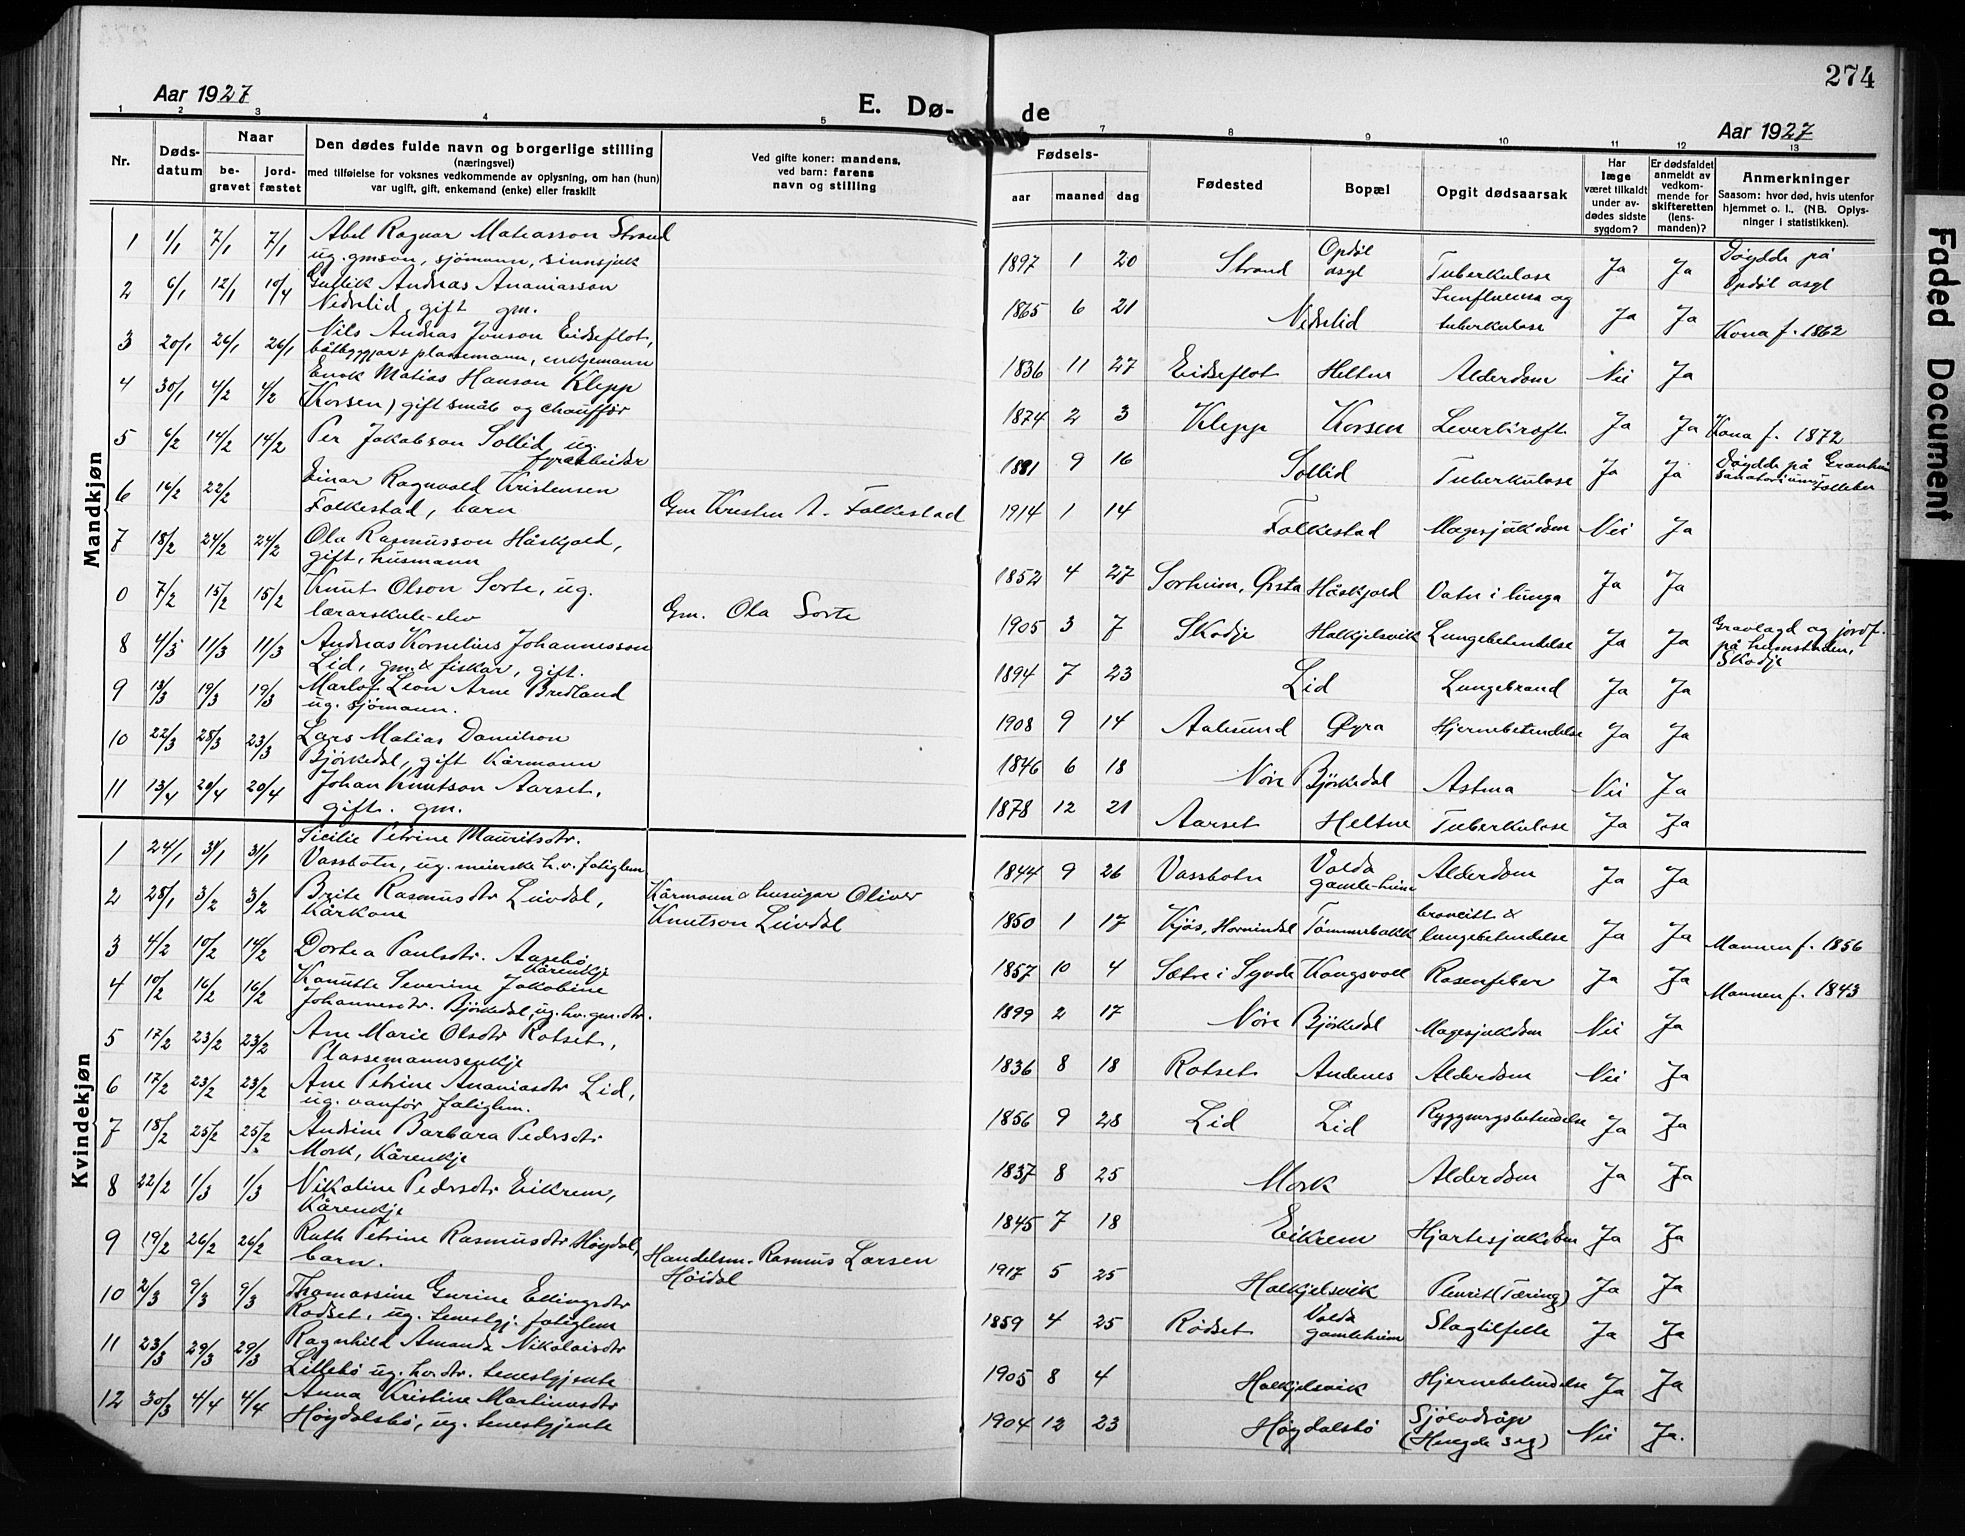 274
Aar 1927
E. Dø-
de
Aar 1927
1 2 3 4 5 7 8 9 10 11 12 13
Nr.
Døds-
datum
Naar
be-
gravet
jord-
fæstet
Den dødes fulde navn og borgerlige stilling
(næringsvei)
med tilføielse for voksnes vedkommende av oplysning, om han (hun)
var ugift, gift, enkemand (enke) eller fraskilt
Ved gifte koner: mandens,
ved barn: farens
navn og stilling
Fødsels-
aar maaned dag
Fødested
Bopæl
Opgit dødsaarsak
Har
læge
været tilkaldt
under av-
dødes sidste
sygdom?
Er dødsfaldet
anmeldt av
vedkom-
mende for
skifteretten
(lens-
manden)?
Anmerkninger
Saasom: hvor død, hvis utenfor
hjemmet o. l., (NB. Oplys-
ninger i statistikken).
Mandkjøn
1 1/1 7/1 7/1 Abel Ragnar Matiasson Strand
ug. gmson, sjømann, sinnsjuk
1897 1 20 Strand Opdøl asyl Tuberkulose Ja Ja Døydde på
Opdøl asyl
2 6/1 12/1 10/4 Gullik Andreas Ananiasson
Nedrelid, gift gm.
1865 6 21 Nedrelid Innfluensa og
tuberkulose Ja Ja Kona f. 1862
3 20/1 26/1 26/1 Nils Andreas Jonson Eidseflot,
båtbyggjar & plassemann, enkjemann
1836 11 27 Eidseflot Heltne Alderdom Nei Ja
4 30/1 4/2 4/2 Enok Matias Hanson Klepp
(Korsen) gift småb og chauffør
1874 2 3 Klepp Korsen Leverkræft Ja Ja Kona f. 1872
5 6/2 14/2 14/2 Per Jakobson Sollid, ug.
fyrarbeider
1881 9 16 Sollid Tuberkulose Ja Ja Døydde på Granheim
sanatorium, Follebu
6 16/2 22/2 Einar Ragnvald Kristensen
Folkestad, barn
Gm Kristen A. Folkestad
1914 1 14 Folkestad Magesjukdom Nei Ja
7 18/2 24/2 24/2 Ola Rasmusson Håskjold,
gift, husmann
1852 4 27 Sorheim, Ørsta Håskjold Vatn i lunga Ja Ja
0 7/2 15/2 15/2 Knut Olson Sorte, ug.
lærarskule-elev
Gm. Ola Sorte
1905 3 7 Skodje Halkjelsvik Lungebetendelse Ja Ja Gravlagd og jordf.
på heimstaden,
Skodje
8 4/3 11/3 11/3 Andreas Kornelius Johannesson
Lid, gm & fiskar, gift.
1894 7 23 Lid Lungebrand Ja Ja
9 13/3 19/3 19/3 Marlof Leon Arne Bredland
ug. sjømann.
1908 9 14 Aalesund Øyra Hjernebetendelse Ja Ja
10 22/3 28/3 23/3 Lars Matias Danielson
Bjørkedal, gift Kårmann
1846 6 18 Nøre Bjørkedal Astma Nei Ja
11 13/4 20/4 20/4 Johan Knutson Aarset,
gift. gm.
1878 12 21 Aarset Heltne Tuberkulose Ja Ja
Kvindekjøn
1 24/1 31/1 31/1 Sicilie Petrine Mauritsdtr.
Vassbotn, ug. meierske h.v. fatiglem
1844 9 26 Vassbotn Volda
gamleheim Alderdom Ja Ja
2 28/1 3/2 3/2 Brite Rasmusdtr Leivdal,
Kårkone
Kårmann & huseigar Oliver
Knutson Leivdal
1850 1 17 Kjøs, Hornindal Tømmerbakk broncitt &
lungebetendelse Ja Ja Mannen f. 1856
3 4/2 10/2 14/2 Dortea Paulsdtr. Aasebø
Kårenkje
1857 10 4 Sætre i Syvde Kongsvoll Rosenfeber Ja Ja Mannen f. 1843
4 10/2 16/2 16/2 Kanutte Severine Jakobine
Johannesdtr. Bjørkedal, ug. hv. gm. dtr.
1899 2 17 Nøre Bjørkedal Magesjukdom Nei Ja
5 17/2 23/2 23/2 Ane Marie Olsdtr Rotset,
Plassemannsenkje
1836 8 18 Rotset Andenes Alderdom Nei Ja
6 17/2 23/2 23/2 Ane Petrine Ananiasdtr Lid,
ug. vanfør fatiglem.
1856 9 28 Lid Lid Ryggmergsbetendelse Ja Ja
7 18/2 25/2 25/2 Andrine Barbara Pedersdtr
Mork, Kårenkje
1837 8 25 Mork Alderdom Ja Ja
8 22/2 1/3 1/3 Nikoline Pedersdtr Eikrem,
Kårenkje
1845 7 18 Eikrem Hjartesjukdom Ja Ja
9 19/2 26/2 26/2 Ruth Petrine Rasmusdtr Høydal,
barn.
Handelsm. Rasmus Larsen
Høidal
1917 5 25 Halkjelsvik Pleurit (Tæring) Ja Ja
10 2/3 9/3 9/3 Thomassine Gurine Ellingsdtr
Rødset, ug. tenestgj. fatiglem
1859 4 25 Rødset Volda
gamleheim Slagtilfelle Ja Ja
11 23/3 29/3 29/3 Ragnhild Amanda Nikolaisdtr
Lillebø ug. hv. dtr. tenestgjente
1905 8 4 Halkjelsvik Hjernebetendelse Ja Ja
12 30/3 4/4 4/4 Anna Kristine Martinusdtr
Høydalsbø, ug. tenestgjente
1904 12 23 Høydalsbø Sjølvdråp
(Hengde seg) Nei Ja.
Faded Document